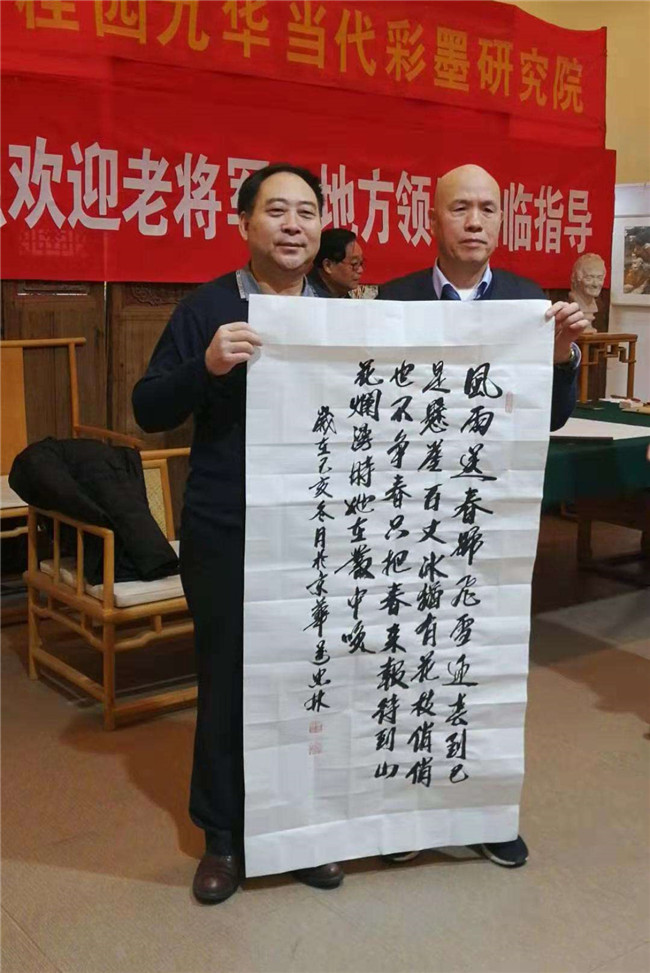 四九华当代彩墨研究院
欢迎老将军 地方领 临指导
風雨送春歸飛雪迎春到已
是懸崖百丈冰猶有花枝俏俏
也不争春只把春来報待到山
花爛漫時她在叢中咲
歲在己亥冬月於京華 忠林